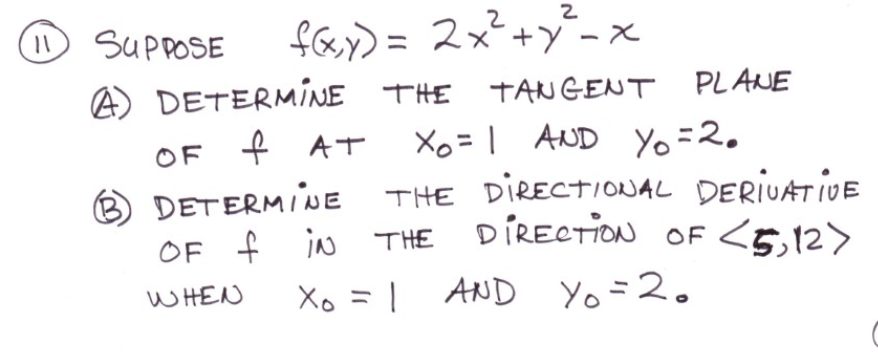 ⑪ SUPPOSE f(x,y) = 2x² + y² - x
Ⓐ DETERMINE THE TANGENT PLANE
OF f AT X₀ = 1 AND Y₀ = 2.
Ⓑ DETERMINE THE DIRECTIONAL DERIVATIVE
OF f IN THE DIRECTION OF <5,12>
WHEN X₀ = 1 AND Y₀ = 2.